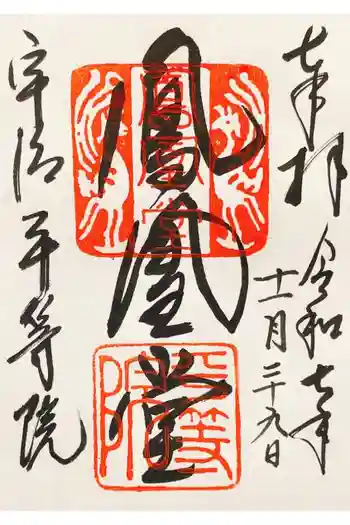 奉拝
令和七年
十一月二十九日
鳳凰堂
鳳凰堂
平等院
宇治平等院